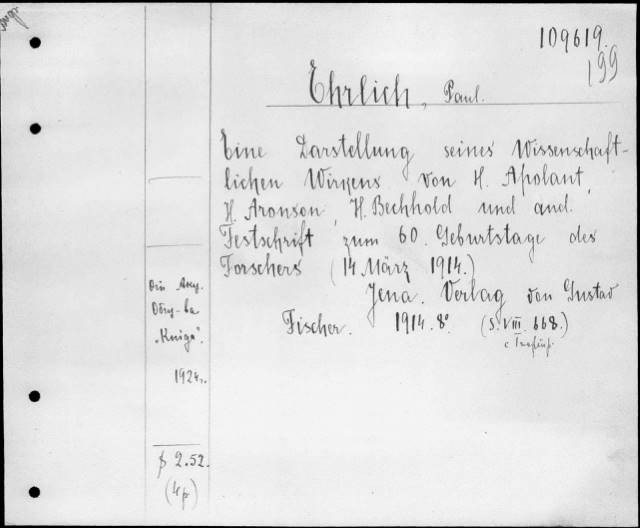 109619.
199
Ehrlich, Paul.
Eine Darstellung seines Wissenschaft-
lichen Wirkens von H. Apolant,
H. Aronson, H. Bechhold und and.
Festschrift zum 60. Geburtstage des
Forschers (14 März 1914.)
Jena. Verlag von Gustav
Fischer. 1914. 8° (S. VIII. 668.)
"Kniga".
1924.
2.52.